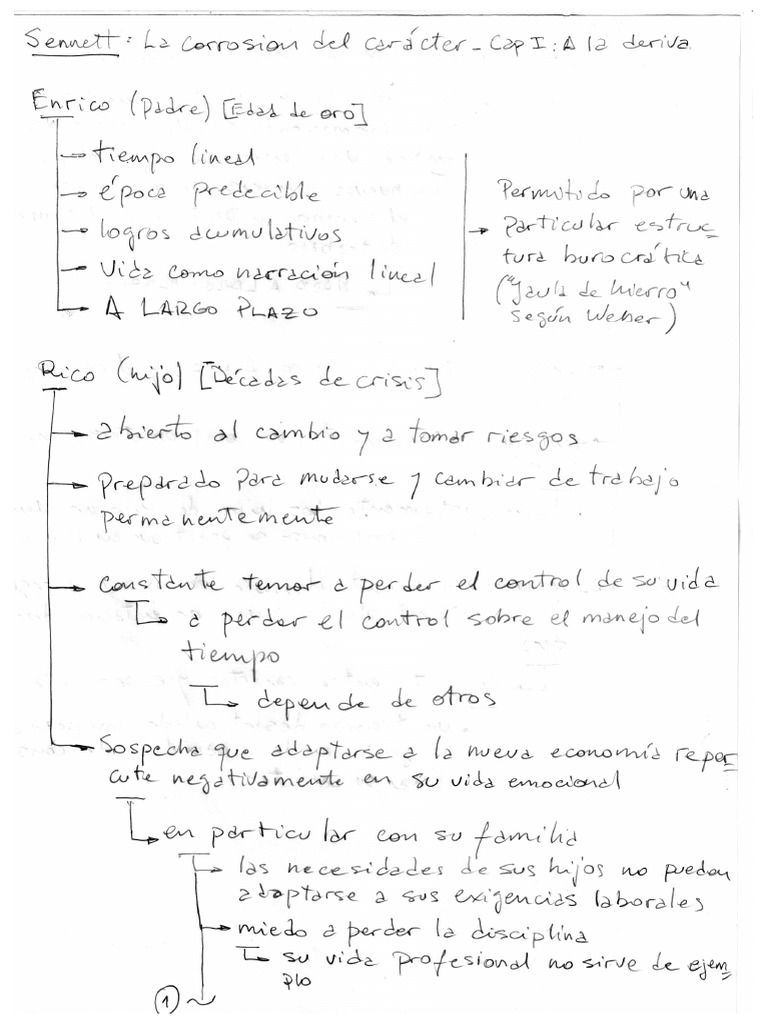 Sennett: La corrosion del carácter - Cap I: A la deriva
Enrico (padre) [Edad de oro]
→ tiempo lineal
→ época predecible
→ logros acumulativos
→ Vida como narración lineal
→ A LARGO PLAZO
→ Permitido por una
particular estruc-
tura burocrática
("Jaula de hierro"
según Weber)
Rico (hijo) [Décadas de crisis]
→ abierto al cambio y a tomar riesgos
→ preparado para mudarse y cambiar de trabajo
permanentemente
→ constante temor a perder el control de su vida
↳ a perder el control sobre el manejo del
tiempo
↳ depende de otros
→ Sospecha que adaptarse a la nueva economía reper-
cute negativamente en su vida emocional
↳ en particular con su familia
↳ las necesidades de sus hijos no pueden
adaptarse a sus exigencias laborales
→ miedo a perder la disciplina
↳ su vida profesional no sirve de ejem-
plo
1